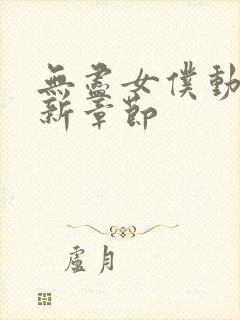 無盡女僕動
新章節
盧月